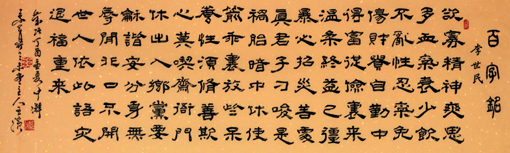 百字銘
李世民
欲寡精神爽思
多血氣衰少飲
不亂性忍氣免
傷財貴自勤中
得富從儉裏來
溫柔終益己強
暴必招災善處
真君子刁唆是
禍胎暗中休使
箭乖裏放些呆
養性須修善欺
心莫喫齋衙門
休出入鄉黨要
龢諧安分身無
辱閒非口不開
世人依此語灾
退福重來